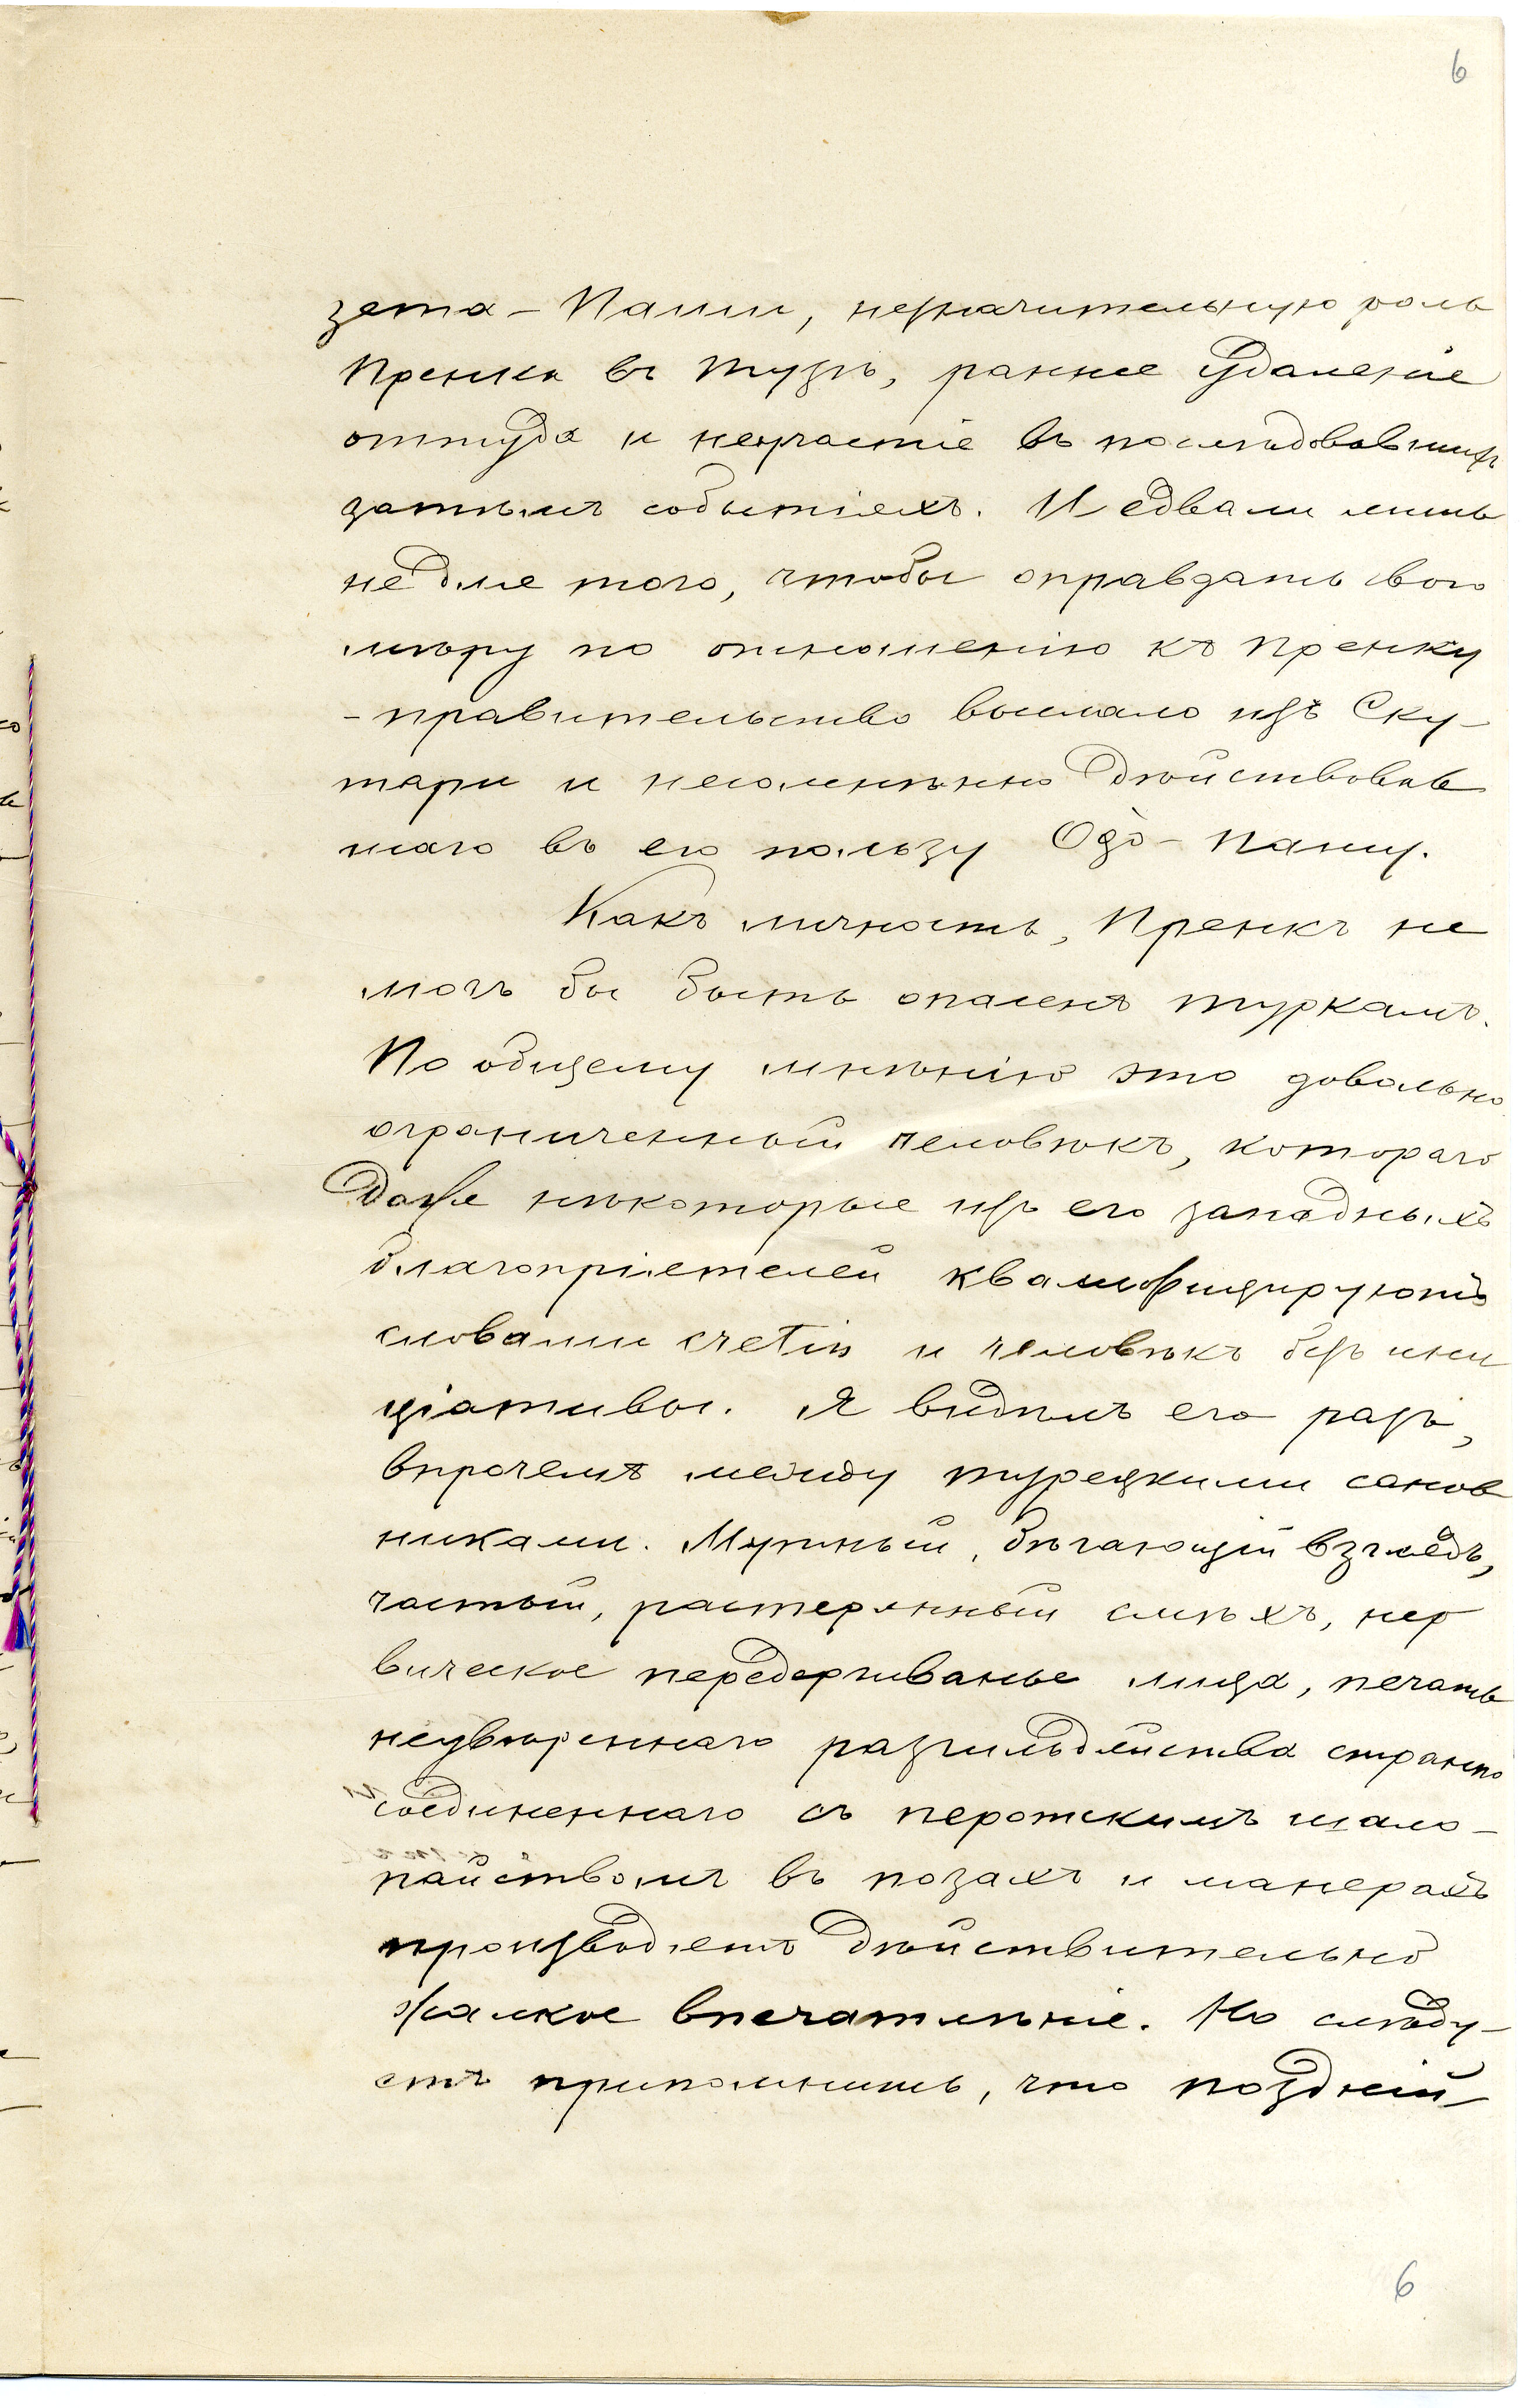 6
зета-Паши, незначительную роль
Пренка въ Тузѣ, раннее удаленіе
оттуда и неучастіе въ послѣдовавшихъ
затѣмъ событіяхъ. И едвали лишь
не для того, чтобы оправдать свою
мѣру по отношенію къ Пренку
- правительство выслало изъ Ску-
тари и несомнѣнно дѣйствовав
шаго въ его пользу Одо-Пашу.
Какъ личность, Пренкъ не
могъ бы быть опасенъ туркамъ.
По общему мнѣнію это довольно
ограниченный человѣкъ, котораго
даже нѣкоторые изъ его западныхъ
благопріятелей квалифицируютъ
словами cretin и человѣкъ безъ ини
ціативы. Я видѣлъ его разъ,
впрочемъ между турецкими санов
никами. Мутный, бѣгающій взглядъ,
частый, растерянный смѣхъ, нер
вическое передергиванье лица, печать
неувѣреннаго разгильдяйства странно
соединеннаго съ перотскимъ шало-
пайствомъ въ позахъ и манерахъ
производятъ дѣйствительно
жалкое впечатлѣніе. Но слѣду-
етъ припомнить, что поздній
6